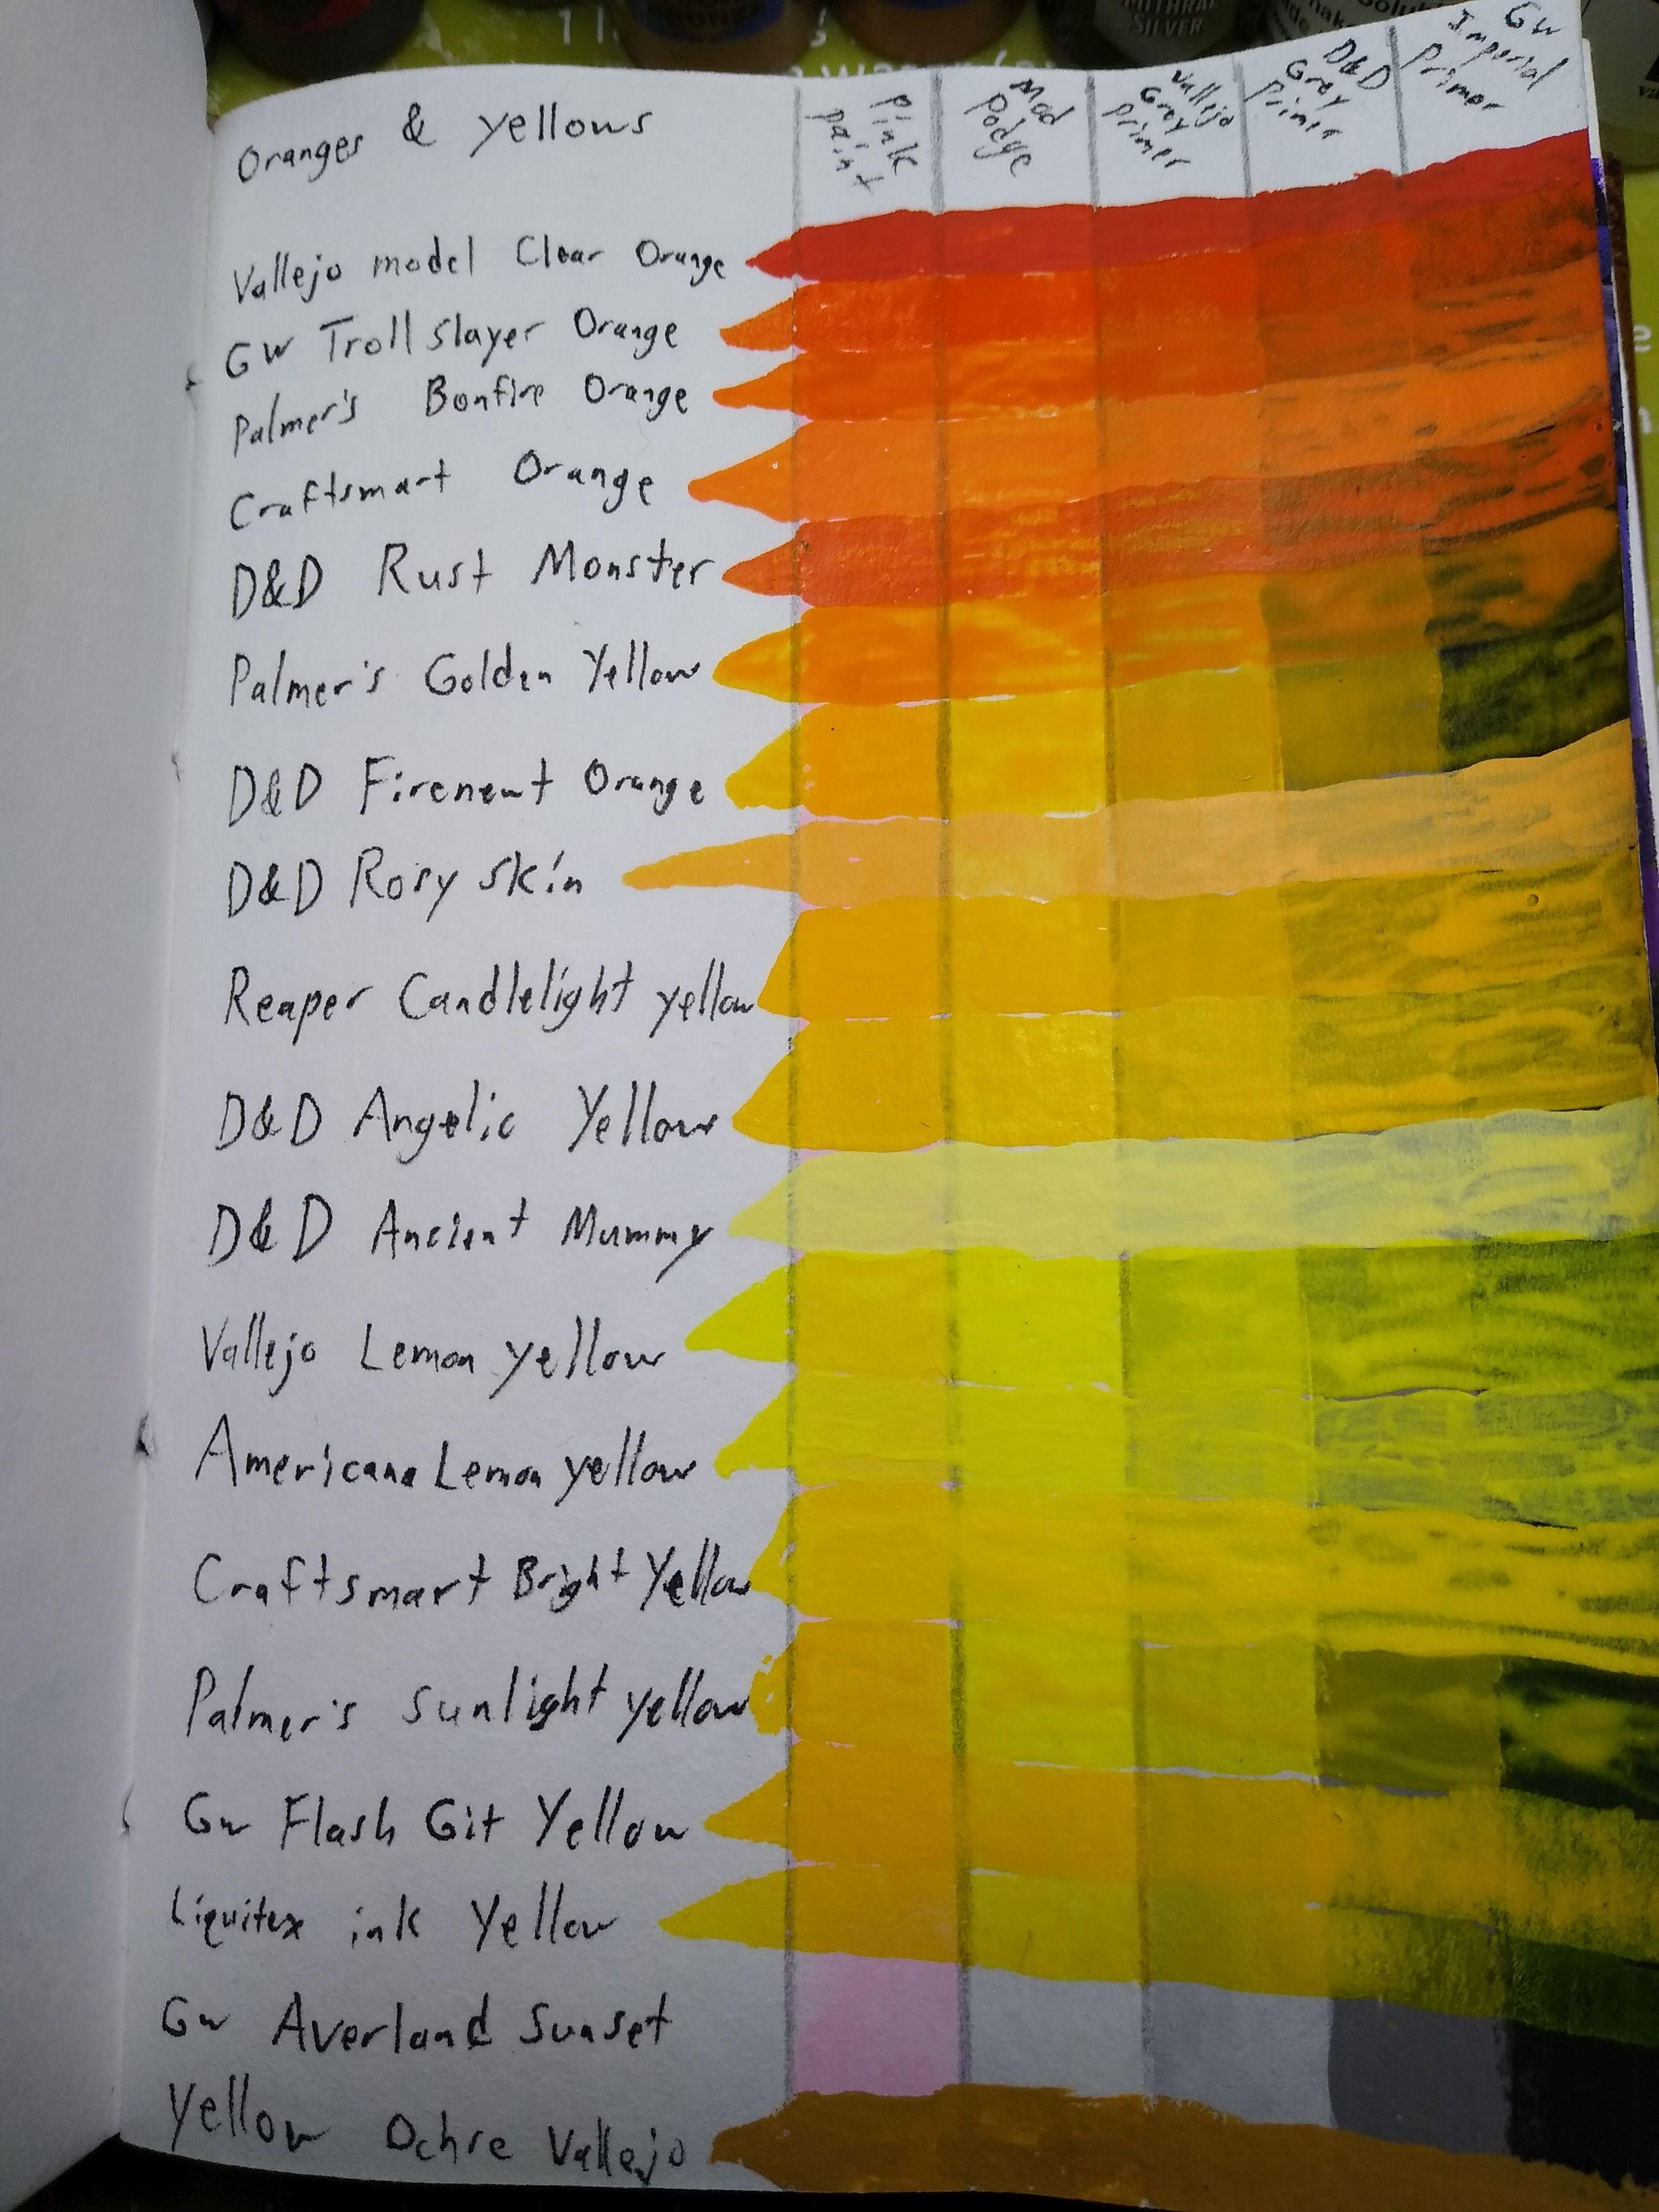 MITHRAL
SILVER
Oranges & yellows
pink
paint
Mod
Podge
Vallejo
Grey
primer
D&D
Grey
Primer
GW
Imperial
Primer
Vallejo model Clear Orange
GW Troll Slayer Orange
Palmer's Bonfire Orange
Craftsmart Orange
D&D Rust Monster
Palmer's Golden Yellow
D&D Firenewt Orange
D&D Rosy skin
Reaper Candlelight yellow
D&D Angelic Yellow
D&D Ancient Mummy
Vallejo Lemon yellow
Americana Lemon yellow
Craftsmart Bright Yellow
Palmer's sunlight yellow
Gw Flash Git Yellow
Liquitex ink Yellow
Gw Averland Sunset
Yellow Ochre Vallejo